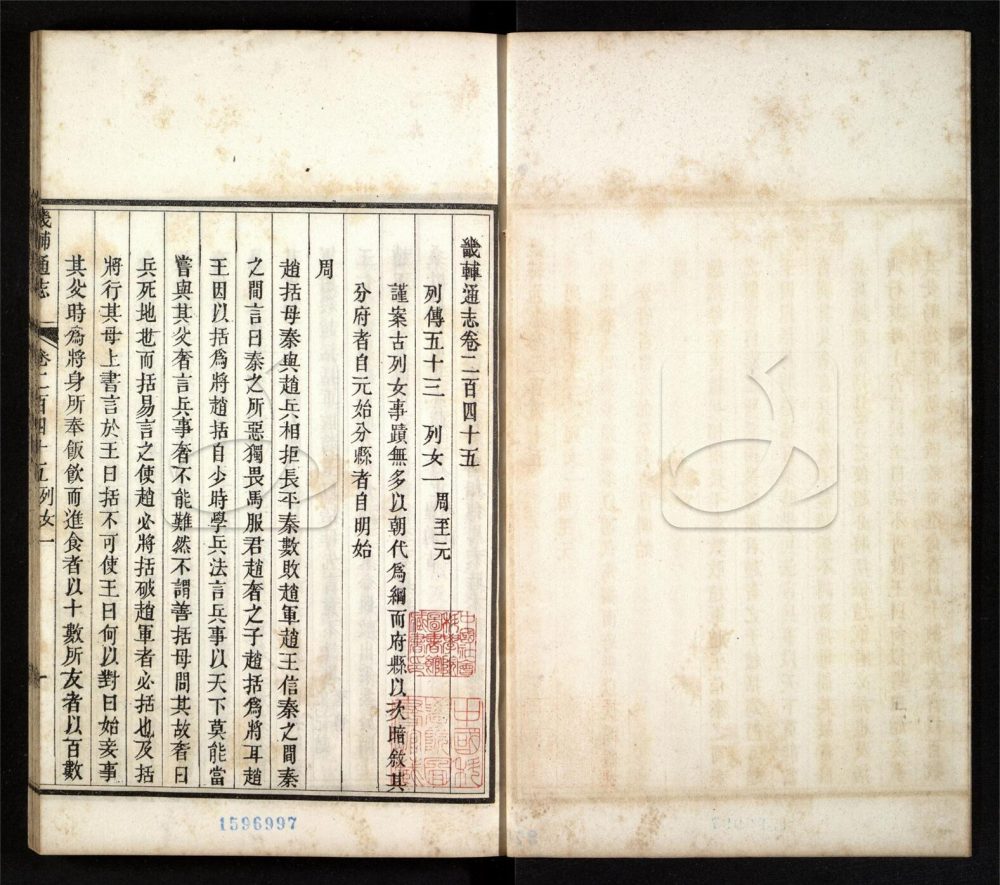 畿輔通志卷二百四十五
列傳五十三 列女一 周至元
謹案古列女事蹟無多以朝代爲綱而府縣以次暗敘其
分府者自元始分縣者自明始
周
趙括母秦與趙兵相拒長平秦數敗趙軍趙王信秦之間秦
之間言曰秦之所惡獨畏馬服君趙奢之子趙括爲將耳趙
王因以括爲將趙括自少時學兵法言兵事以天下莫能當
嘗與其父奢言兵事奢不能難然不謂善括母問其故奢曰
兵死地也而括易言之使趙必將括破趙軍者必括也及括
將行其母上書言於王曰括不可使王曰何以對曰始妾事
其父時爲將身所奉飯飲而進食者以十數所友者以百數
畿輔通志 卷二百四十五 列女一
1596997